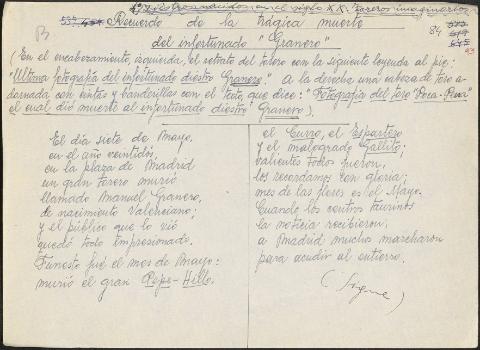 Recuerdo de la trágica muerte
B
84
93
del infortunado "Granero"
(En el encabezamiento, izquierda, el retrato del torero con la siguiente leyenda al pie:
"Ultima fotografía del infortunado diestro Granero." A la derecha una cabeza de toro a-
dornada con cintas y banderillas con el texto que dice: "Fotografía del toro "Poca-Pena"
el cual dió muerte al infortunado diestro Granero).
El día siete de Mayo,
en el año veintidós,
en la plaza de Madrid
un gran torero murió
llamado Manuel Granero,
de nacimiento Valenciano;
y el público que lo vió
quedó todo impresionado.
Funesto fué el mes de Mayo:
murió el gran Pepe-Hillo,
el Curro, el Espartero
y el malogrado Gallito;
valientes todos fueron,
los recordamos con gloria;
mes de las flores es el Mayo.
Cuando los centros taurinos
la noticia recibieron,
a Madrid muchos marcharon
para acudir al entierro.
(Sigue)